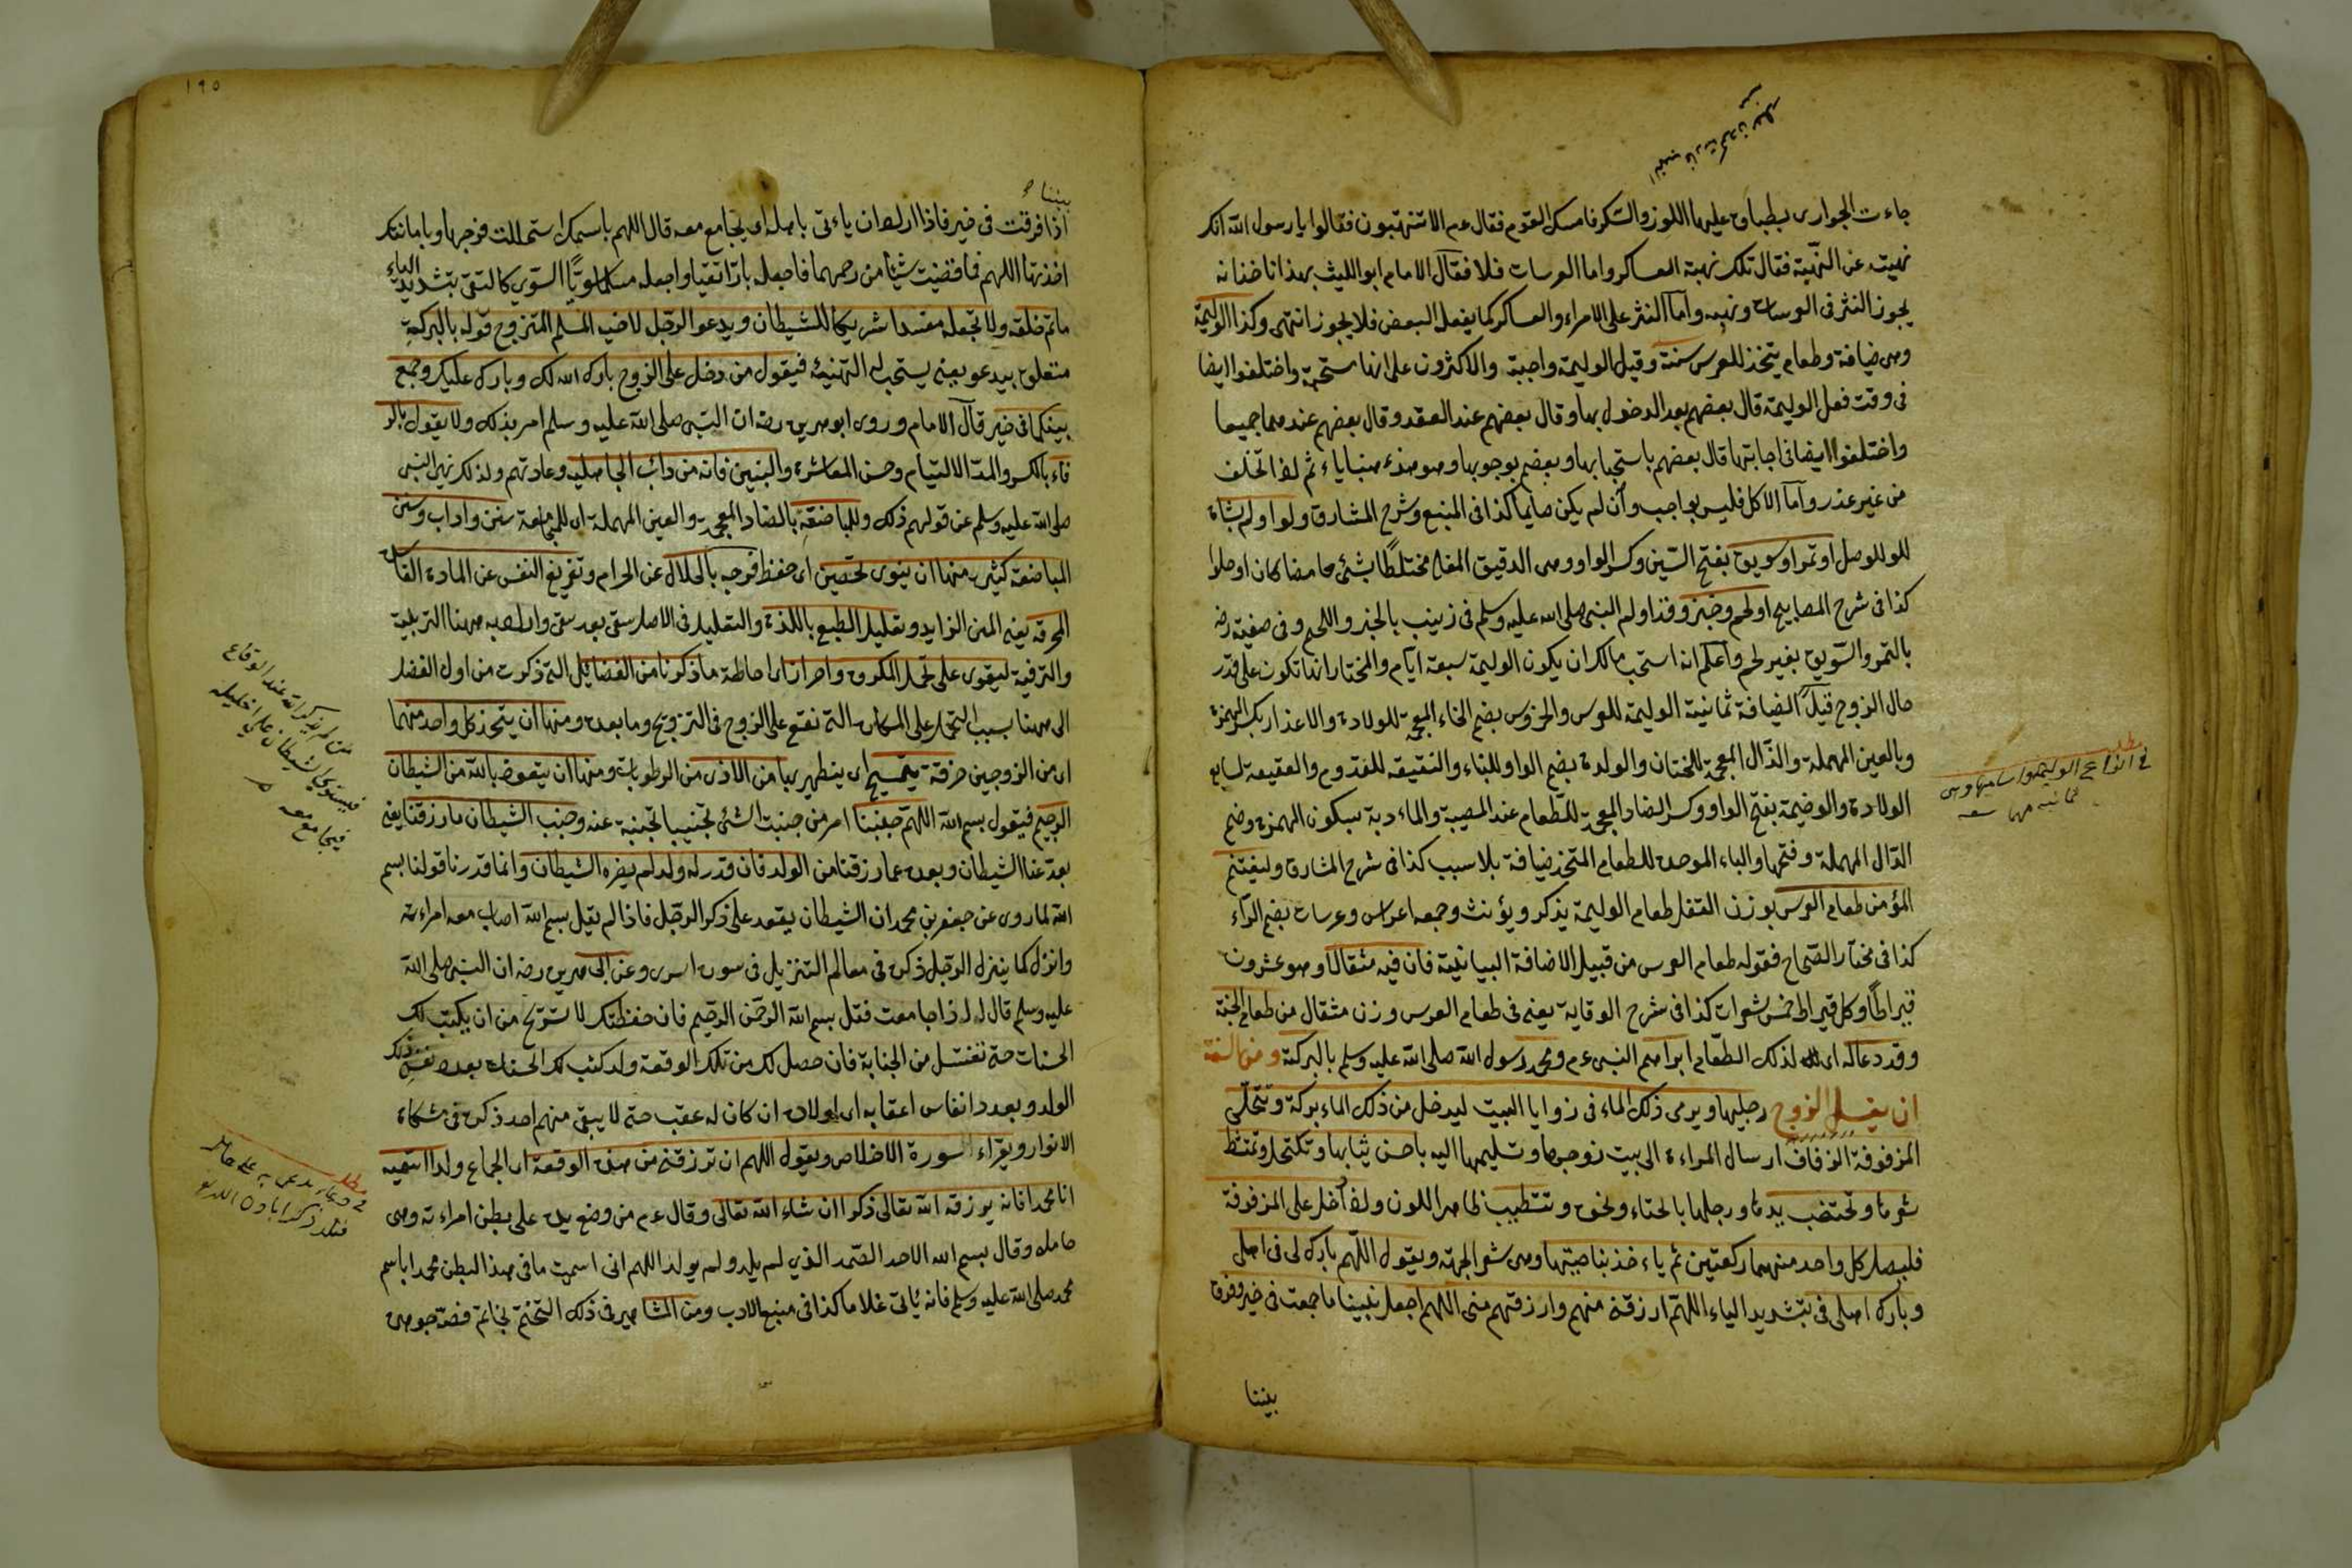 جاءت الجوارى بطباق عليها اللوز والسكر فامسك القوم فقال عم الا تنتهبون فقالوا يا رسول الله انك
نهيت عن النهبة فقال تلك نهبة العساكر واما العرسات فلا فقال الامام ابو الليث بهذا ناخذ انه
يجوز النثر فى العرسات ونهبه واما النثر على الامراء والعساكر كما يفعل البعض فلا يجوز انتهى وكذا الوليمة
وهى ضيافة وطعام يتخذ للعرس سنة وقيل الوليمة واجبة والاكثرون على انها مستحبة واختلفوا ايضا
فى وقت فعل الوليمة قال بعضهم بعد الدخول بها وقال بعضهم عند العقد وقال بعضهم عندهما جميعا
واختلفوا ايضا فى اجابتها قال بعضهم باستحبابها وبعضهم بوجوبها
من غير عذر واما الاكل فليس بواجب وان لم يكن صايما كذا فى المنبع وشرح المشارق ولو اولم بشاة
او تمر او سويق بفتح السين وكسر الواو وهى الدقيق المقلى مختلطا بشئ حامضا كان او حلوا
كذا فى شرح المصابيح او لحم وخبز وقد اولم النبى صلى الله عليه وسلم فى زينب بالخبز واللحم وفى صفية رضه
بالتمر والسويق بغير لحم واعلم انه استحب مالك ان يكون الوليمة سبعة ايام والمختار انها تكون على قدر
حال الزوج قيل الضيافة ثمانية الوليمة للعرس والخرس بضم الخاء المعجمة للولادة والاعذار بكسر الهمزة
وبالعين المهملة والذال المعجمة للختان والوكرة بضم الواو للبناء والنقيعة للقدوم والعقيقة لسابع
الولادة والوضيمة بفتح الواو وكسر الضاد المعجمة للطعام عند المصيبة والمادبة بسكون الهمزة وضم
الدال المهملة وفتحها والباء الموحدة للطعام المتخذ ضيافة بلا سبب كذا فى شرح المشارق وليغتنم
المؤمن طعام العرس بوزن القفل طعام الوليمة يذكر ويؤنث وجمعه اعراس وعرسات بضم الراء
كذا فى مختار الصحاح فقوله طعام العرس من قبيل الاضافة البيانية فان فيه مثقالا وهو عشرون
قيراطا وكل قيراط خمس شعرات كذا فى شرح الوقاية يعنى فى طعام العرس وزن مثقال من طعام الجنة
وقد دعا له اى لذلك الطعام ابراهيم النبى عم ومحمد رسول الله صلى الله عليه وسلم بالبركة ومن السنة
ان يغسل الزوج رجليها ويرمى ذلك الماء فى زوايا البيت ليدخل من ذلك الماء بركة وتتحلى
المزفوفة الزفاف ارسال المراءة الى بيت زوجها وتسليمها اليه باحسن ثيابها وتكتحل وتمتشط
شعرها وتختضب يدها ورجلها بالحناء ونحوه وتتطيب بما ظهر اللون واذا دخل على المزفوفة
فليصل كل واحد منهما ركعتين ثم ياءخذ بناصيتها وهى شعر الجبهة ويقول اللهم بارك لى فى اهلى
وبارك اهلى فى بتشديد الياء اللهم ارزقنى منهم وارزقهم منى اللهم اجعل بيننا ما جمعت فى خير وفرق
بيننا
فى انواع الوليمة واسامها وهى
ثمانية
١٩٥
بيننا
اذا فرقت فى خير فاذا اراد ان ياءتى باهله اى يجامع معه قال اللهم باسمك استحللت فرجها وبامانتك
اخذتها اللهم فما قضيت شيئا من رحمها فاجعله بارا تقيا واجعله مسلما سويا السوى كالتقى بتشديد الياء
ما تم خلقه ولا تجعله مفسدا شريكا للشيطان ويدعو الرجل لاخيه المسلم المتزوج قوله بالبركة
متعلق بيدعو يعنى يستحب له التهنية فيقول من دخل على الزوج بارك الله لك وبارك عليك وجمع
بينكما فى خير قال الامام وروى ابو هريرة رضه ان النبى صلى الله عليه وسلم امر بذلك ولا يقول بالر
فاء بالكسر والمد الالتيام وحسن المعاشرة والبنين فانه من داب الجاهلية وعادتهم ولذلك نهى النبى
صلى الله عليه وسلم عن قولهم ذلك وللمباضعة بالضاد المعجمة والعين المهملة اى للمجامعة سنن واداب وسنن
المباضعة كثيرة منها ان ينوى تحصين اى حفظ فرجه بالحلال عن الحرام وتفريغ النفس عن المادة الفاسدة
المحرقة يعنى المنى الزايد وتعليل الطبع باللذة والتعليل فى الاصل سقى بعد سقى والمراد به ههنا التربية
والترفية ليقوى على تحمل المكروه واحرازا اى احاطة ما ذكرنا من الفضايل التى ذكرت من اول الفصل
الى ههنا بسبب التحمل على المكاره التى تقع على الزوج فى التزويج وما بعده ومنها ان يتخذ كل واحد منهما
اى من الزوجين خرقة يتمسح اى يتطهر بها من الاذى من الرطوبات ومنها ان يتعوذ بالله من الشيطان
الرجيم فيقول بسم الله اللهم جنبنا امر من جنبت الشئ تجنيبا تجنبه عنه وجنب الشيطان ما رزقنا يعنى
بعد عنا الشيطان وبعده عما رزقتنا من الولد فان قدر له ولد لم يضره الشيطان وانما قدرنا قولنا بسم
الله لما روى عن جعفر بن محمد ان الشيطان يقعد على ذكر الرجل فاذا لم يقل بسم الله اصاب معه امراءته
وانزل كما ينزل الرجل ذكره فى معالم التنزيل فى سورة اسرى وعن ابى هريرة رضه ان النبى صلى الله
عليه وسلم قال له اذا جامعت فقل بسم الله الرحمن الرحيم فان حفظتك لا تستريح من ان يكتب لك
الحسنات حتى تغتسل من الجنابة فان حصل لك من تلك الوقعة ولد كتب لك الحسنات بعدد نفس ذلك
الولد وبعدد انفاس اعقابه اى اولاده ان كان له عقب حتى لا يبقى منهم احد ذكره فى مشكاة
الانوار ويقراء سورة الاخلاص ويقول اللهم ان ترزقنى من هذه الوقعة اى الجماع ولدا اسميه
انا محمدا فانه يرزقه الله تعالى ذكرا ان شاء الله تعالى وقال عم من وضع يده على بطن امراءته وهى
حامله وقال بسم الله الاحد الصمد الذي لم يلد ولم يولد اللهم انى اسميت ما فى هذا البطن محمدا باسم
محمد صلى الله عليه وسلم فانه ياتى غلاما كذا فى منبع الادب ومن المشاهير فى ذلك التختم بخاتم فضة
من لم يذكر الله عند الوقاع
فيستوي الشيطان على احليله
فيجامع معه
مطلب